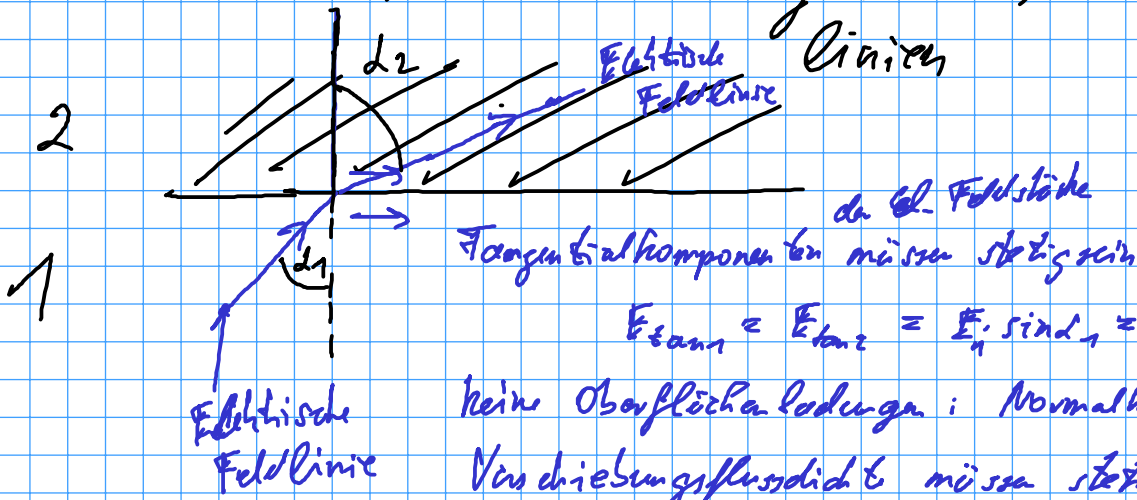 linien
α2
Elektrische
Feldlinie
2
der el. Feldstärke
Tangentialkomponenten müssen stetig sein
1
α1
E tan1 = E tan2 = E1 · sin α1 =
Elektrische
Feldlinie
keine Oberflächenladungen : Normalk
Verschiebungsflussdicht müssen stet